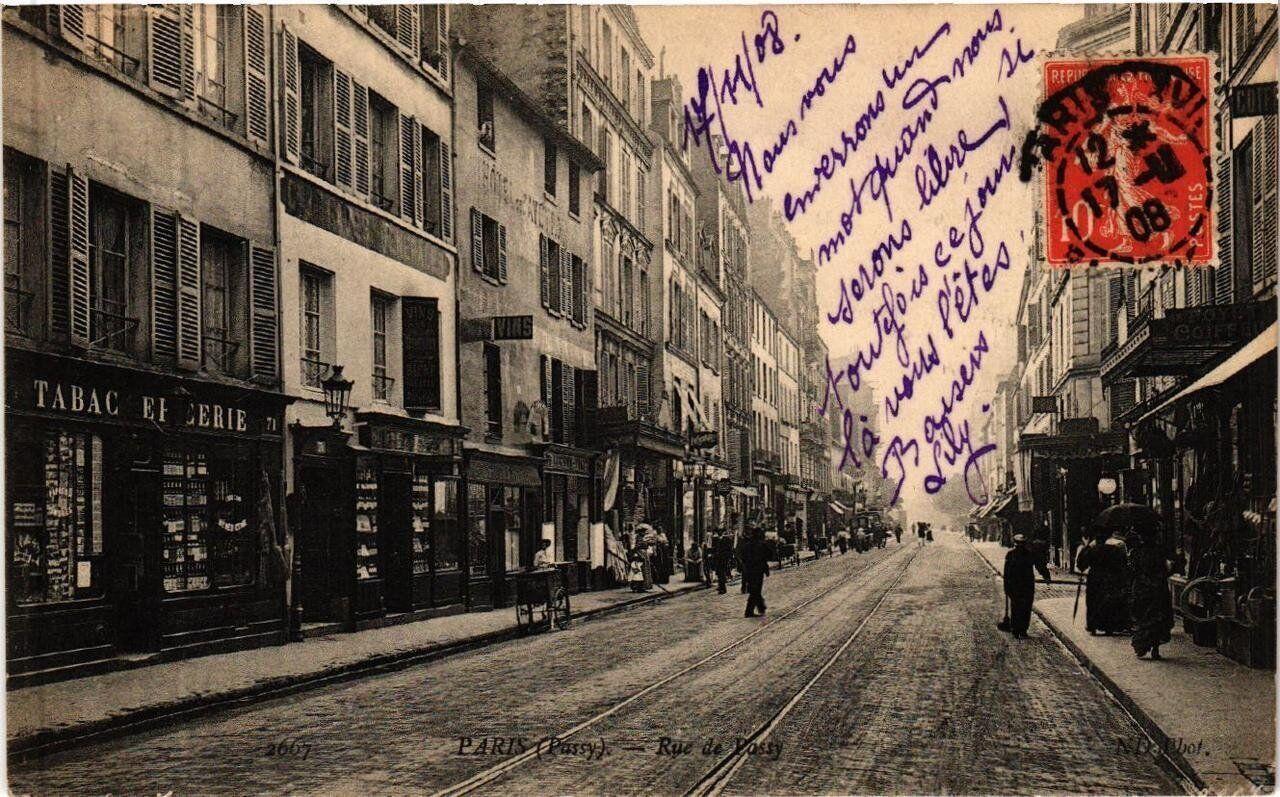 17/11/08.
Nous vous
enverrons un
mot quand nous
serons libre si
toutefois ce jour
là vous l'êtes.
Baisers
Lily.
REPU
SE
POSTES
10
PARIS
12
17
08
TABAC EPICERIE 71
HÔTEL
VINS
VINS
COIFFE
2667
PARIS (Passy). — Rue de Passy
ND Phot.